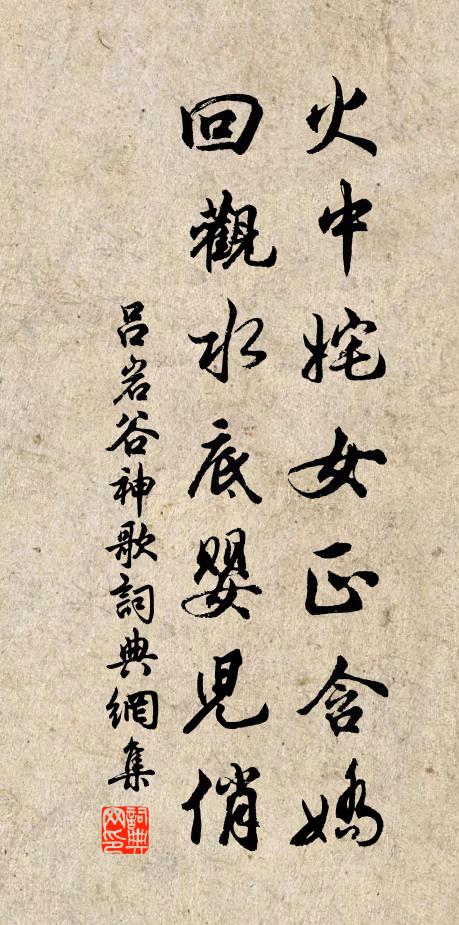 火中姹女正含嬌
回觀水底嬰兒俏
吕岩谷神歌詞典網集
詞典网印